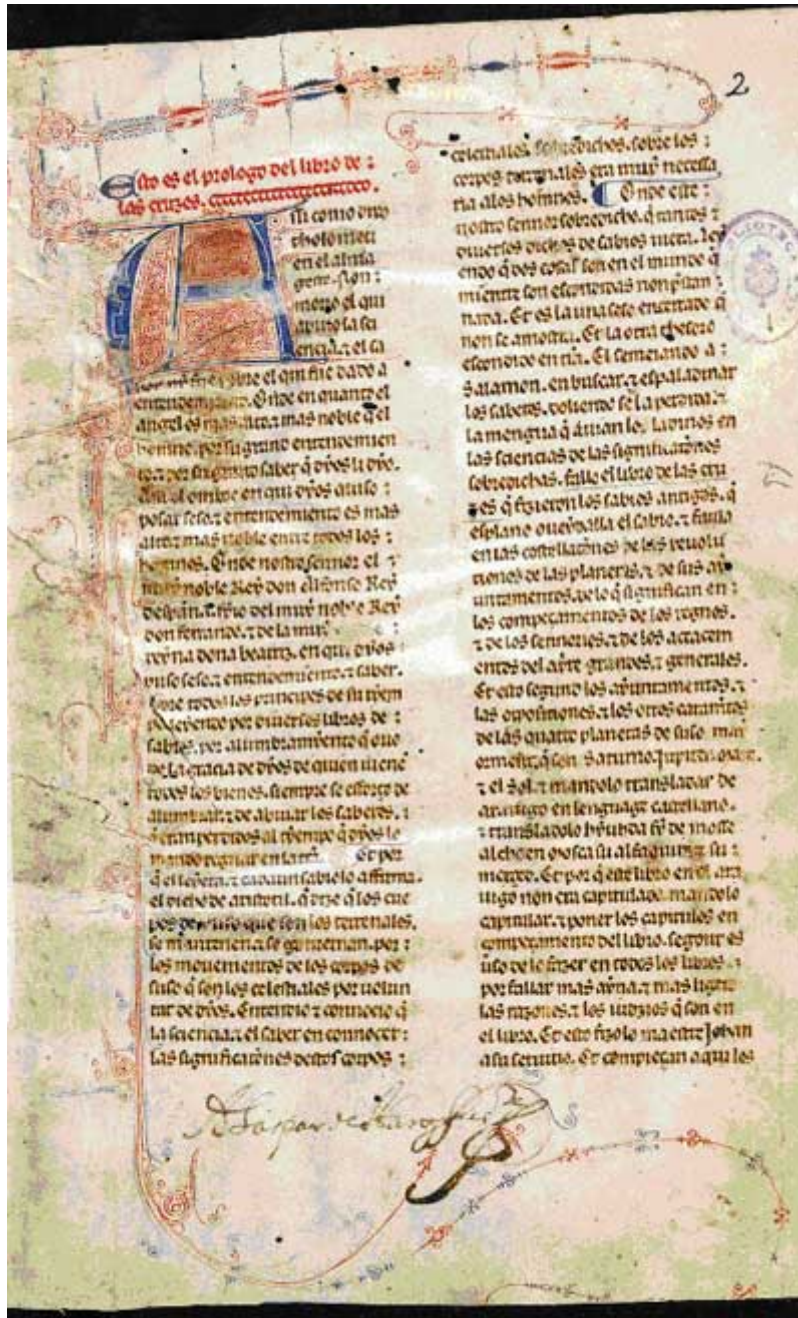 2
Esto es el prologo del libro de :
las cruzes.
A
ssi como dixo
tholomeu
en el alma
gest. Non :
morio el qui
abiuo la sci
encia. ⁊ el sa
ber. nin fue pobre el qui fue dado a
entendemiento. Onde en quanto el
angel es mas alto. ⁊ mas noble q̃ el
homne. por su grand entendemien
to. ⁊ por su grand saber q̃ dỹos li dỹo.
Assi el ombre en qui dỹos quiso :
posar seso. ⁊ entendemiento es mas
alto. ⁊ mas noble entre todos los :
homnes. Onde nostro sennor el ⁊
muy noble Reỹ don alfonso Reỹ
despanna. fijo del muỹ noble Reỹ
don ferrando. ⁊ de la muỹ :
reỹna dona beatriz. en qui dỹos
puso seso. ⁊ entendemiento. ⁊ saber.
sobre todos los principes de su tỹem
po. leyendo por diuersos libros de :
sabios. por alumbramỹento q̃ ouo
de la gracia de dỹos de quien uienẽ
todos los bienes. siempre se esforço de
alumbrar. ⁊ de abiuar los saberes. q̃
eran perdidos al tỹempo q̃ dỹos lo
mando regnar en la tr̃a. Et por
q̃ el leyera. ⁊ cada un sabio lo affirma.
el dicho de aristotil. q̃ dize q̃ los cue
pos de yuso que son los terrenales.
se mantenen. ⁊ se gouiernan. por :
los mouementos de los corpos de
suso q̃ son los celestiales por uolun
tat de dỹos. Entendio ⁊ connocio q̃
la sciencia. ⁊ el saber en connocer :
las significatiões destos corpos :
celestiales. sobredichos. sobre los :
corpos terrenales era muỹ necessa
ria a los homnes. Onde este :
nostro sennor sobredicho. q̃ tantos ⁊
diuersos dichos de sabios uiera. Ley
endo q̃ dos cosas son en el mundo q̃
mientre son escondidas non pr̃stan
nada. Et es la una seso encerrado q̃
non se amostra. Et la otra thesoro
escondido en tr̃a. El semeiando a :
Salamon. en buscar. ⁊ espaladinar
los saberes. doliendo se la perdida. ⁊
la mengua q̃ auian los ladinos en
las sciencias de las significatiões
sobredichas. fallo el libro de las cru
zes q̃ fizieron los sabios antigos. q̃
esplano oueỹdalla el sabio. ⁊ faula
en las costellatiões de las reuolu
tiones de las planetas. ⁊ de sus aỹ
untamentos. de lo q̃ significan en :
los compeçamentos de los regnos.
⁊ de los sennorios. ⁊ de los acaecem
entos del aỹre grandes. ⁊ generales.
Et esto segund los aỹuntamentos. ⁊
las oposiciones. ⁊ los otros catamỹtos
de las quatro planetas de suso maỹ
orment̃. q̃ son Saturno. Jupiter. Mars.
⁊ el sol. ⁊ mandolo transladar de
arauigo en lenguage castellano.
⁊ transladolo hỹuhda fỹ de mosse
alchoen mosca su alfaquim. ⁊ su :
merçed. Et por q̃ este libro en el ara
uigo non era capitulado. mandolo
capitular. ⁊ poner los capitulos en
compeçamento del libro. segont es
uso de lo fazer en todos los libros. ⁊
por fallar mas aỹna. ⁊ mas ligero
las razones. ⁊ los iudizios q̃ son en
el libro. Et esto fizolo maestre Johan
a su seruitio. Et compieçan aqui los